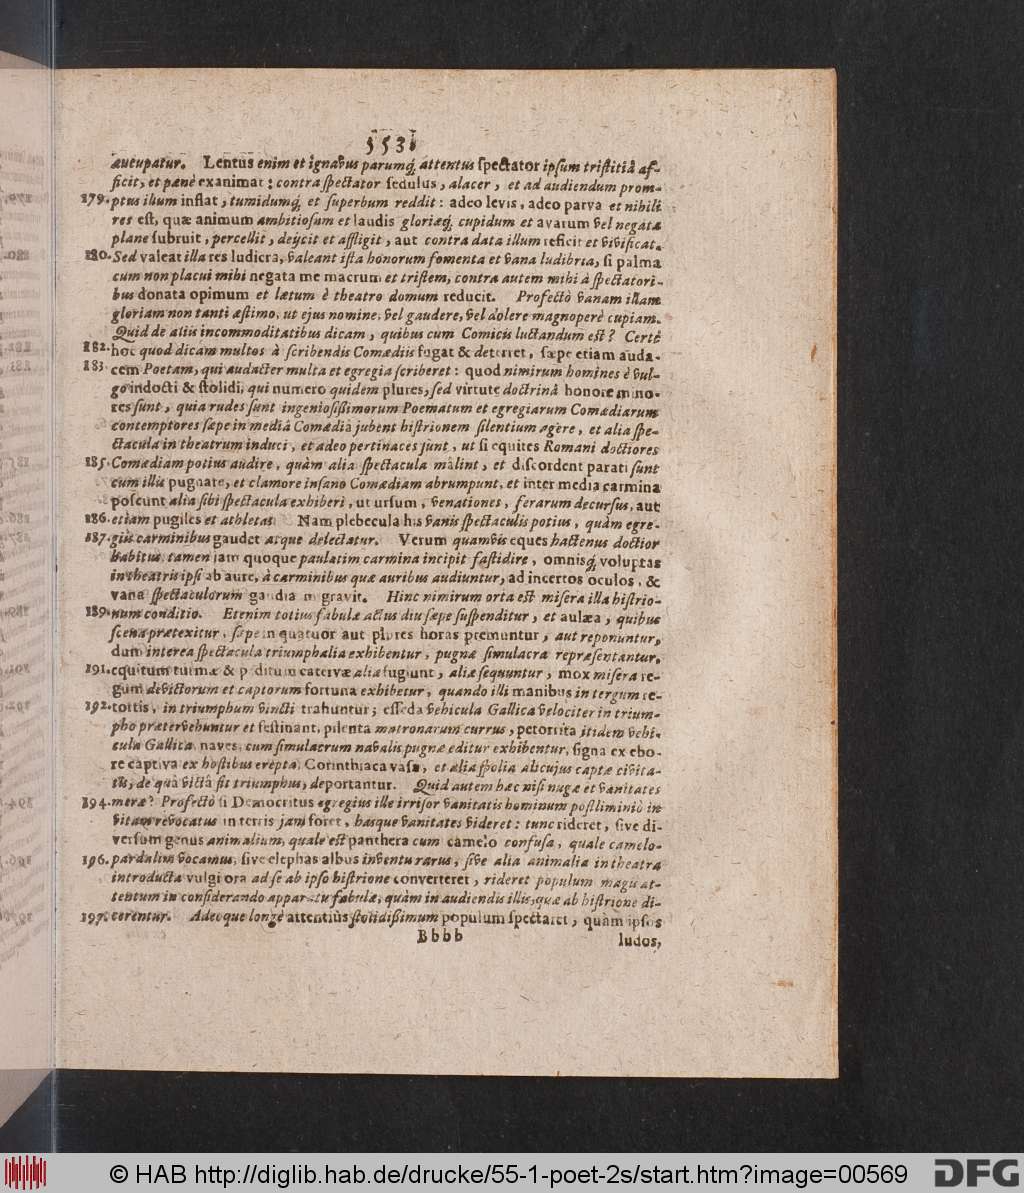 553
aucupatur. Lentus enim et ignavus parumq́; attentus spectator ipsum tristitiâ af-
ficit, et pænè exanimat: contra spectator sedulus, alacer, et ad audiendum prom-
179. ptus illum inflat, tumidumq́; et superbum reddit: adeo levis, adeo parva et nihili
res est, quæ animum ambitiosum et laudis gloriæq́; cupidum et avarum vel negata
plane subruit, percellit, dejicit et affligit, aut contra data illum reficit et vivificat.
180. Sed valeat illa res ludicra, valeant ista honorum fomenta et vana ludibria, si palma
cum non placui mihi negata me macrum et tristem, contra autem mihi à spectatori-
bus donata opimum et lætum è theatro domum reducit. Profectò vanam illam
gloriam non tanti æstimo, ut ejus nomine, vel gaudere, vel dolere magnoperè cupiam.
Quid de aliis incommoditatibus dicam, quibus cum Comicis luctandum est? Certè
182. hoc quod dicam multos à scribendis Comœdiis fugat & deterret, sæpe etiam auda-
183. cem Poetam, qui audacter multa et egregia scriberet: quod nimirum homines è vul-
go indocti & stolidi, qui numero quidem plures, sed virtute doctrinâ honore mino-
res sunt, quia rudes sunt ingeniosissimorum Poematum et egregiarum Comœdiarum
contemptores sæpe in mediâ Comœdiâ jubent histrionem silentium agere, et alia spe-
ctacula in theatrum induci, et adeo pertinaces sunt, ut si equites Romani doctiores
185. Comœdiam potius audire, quàm alia spectacula màlint, et discordent parati sunt
cum illis pugnare, et clamore insano Comœdiam abrumpunt, et inter media carmina
poscunt alia sibi spectacula exhiberi, ut ursum, venationes, ferarum decursus, aut
186. etiam pugiles et athletas. Nam plebecula his vanis spectaculis potius, quàm egre-
187. giis carminibus gaudet atque delectatur. Verum quamvis eques hactenus doctior
habitus, tamen jam quoque paulatim carmina incipit fastidire, omnisq́; voluptas
in theatris ipsi ab aure, à carminibus quæ auribus audiuntur, ad incertos oculos, &
vana spectaculorum gaudia migravit. Hinc nimirum orta est misera illa histrio-
189. num conditio. Etenim totius fabulæ actus diu sæpe suspenditur, et aulæa, quibus
scena prætexitur, sæpe in quatuor aut plures horas premuntur, aut reponuntur,
dum interea spectacula triumphalia exhibentur, pugnæ simulacra repræsentantur,
191. equitum turmæ & peditum catervæ aliæ fugiunt, aliæ sequuntur, mox misera re-
gum devictorum et captorum fortuna exhibetur, quando illi manibus in tergum re-
192. tortis, in triumphum vincti trahuntur; esseda vehicula Gallica velociter in trium-
pho prætervehuntur et festinant, pilenta matronarum currus, petorrita itidem vehi-
cula Gallica, naves, cum simulacrum navalis pugnæ editur exhibentur, signa ex ebo-
re captiva ex hostibus erepta, Corinthiaca vasa, et alia spolia alicujus captæ civita-
tis, de quâ victâ fit triumphus, deportantur. Quid autem hæc nisi nugæ et vanitates
194. meræ? Profectò si Democritus egregius ille irrisor vanitatis hominum postliminiò in
vitam revocatus in terris jam foret, hasque vanitates videret: tunc rideret, sive di-
versum genus animalium, quale est panthera cum camelo confusa, quale camelo-
196. pardalim vocamus, sive elephas albus inventu rarus, sive alia animalia in theatra
introducta vulgi ora ad se ab ipso histrione converteret, rideret populum magis at-
tentum in considerando apparatu fabulæ, quàm in audiendis illis, quæ ab histrione di-
197. cerentur. Adeoque longè attentiùs stolidissimum populum spectaret, quàm ipsos
Bbbb
ludos,
© HAB http://diglib.hab.de/drucke/55-1-poet-2s/start.htm?image=00569
DFG